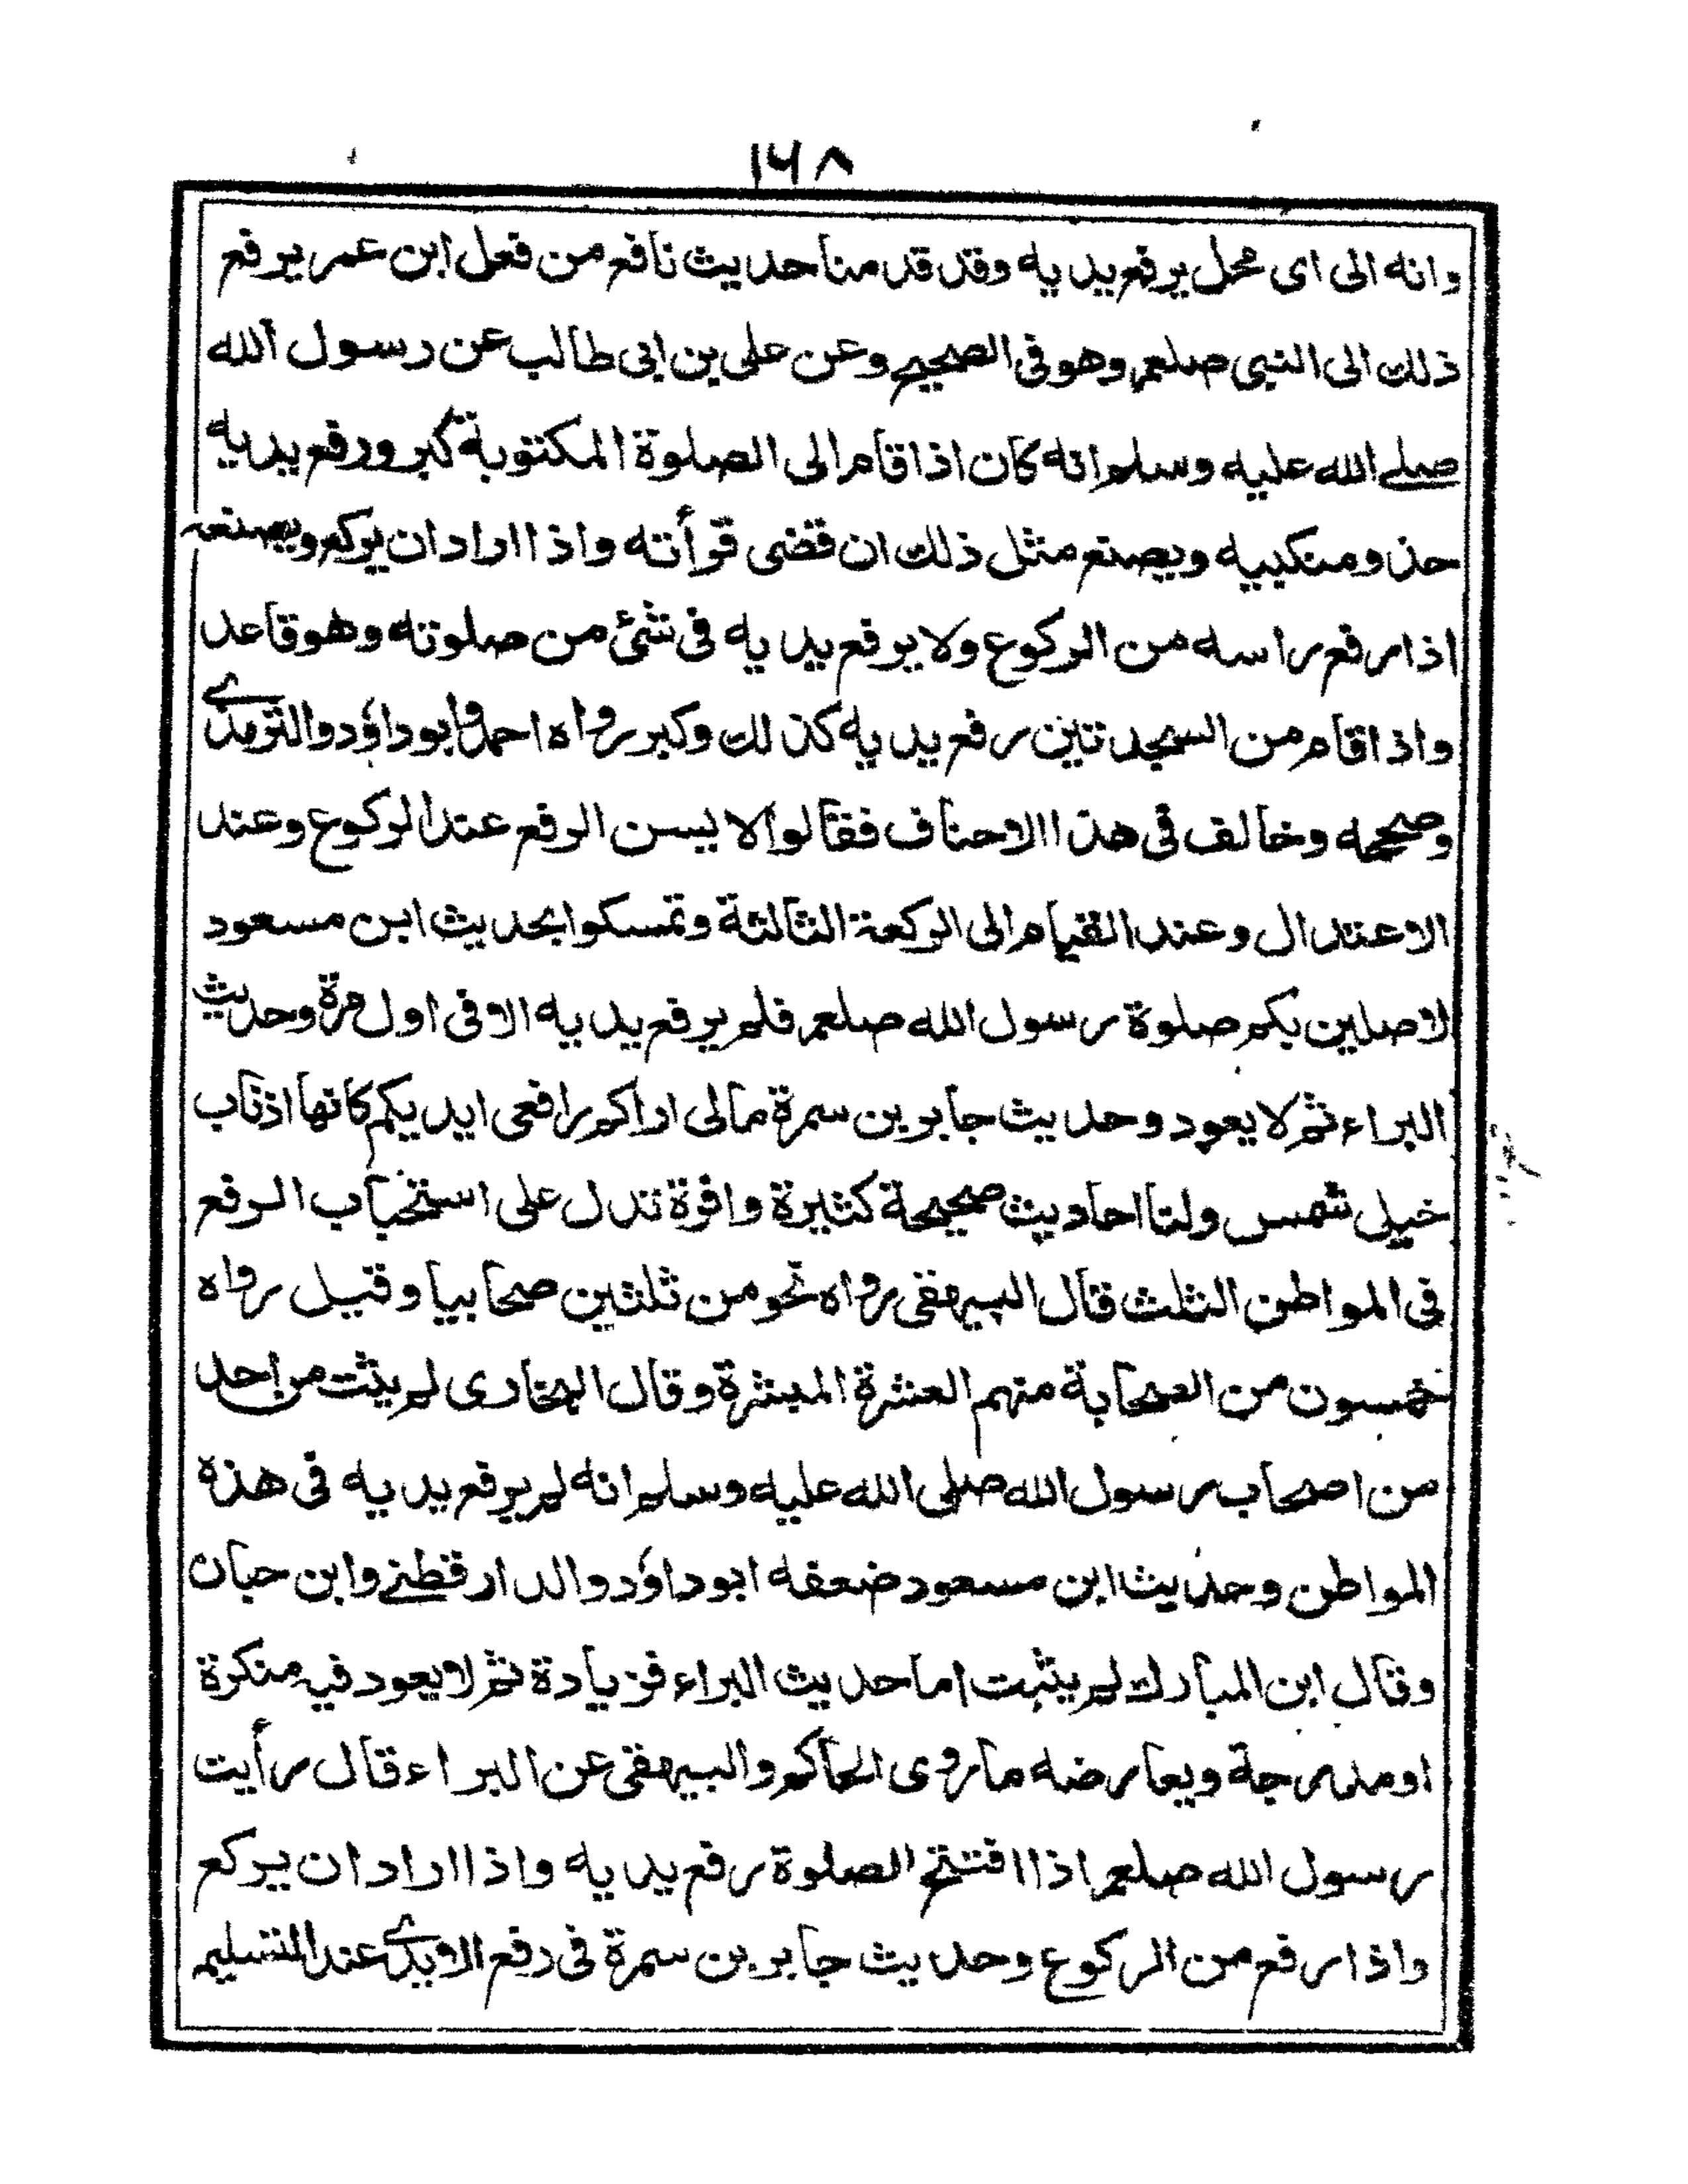 ١٦٨
وانه الى اى محل يرفع يديه وقد قدمنا حديث نافع من فعل ابن عمر يرفع
ذلك الى النبى صلعم وهو فى الصحيح وعن على بن ابى طالب عن رسول الله
صلے الله عليه وسلم انه كان اذا قام الى الصلوة المكتوبة كبر ورفع يديه
حذو منكبيه ويصنع مثل ذلك ان قضى قرأته واذا اراد ان يركع ويصنعه
اذا رفع راسه من الركوع ولا يرفع يديه فى شئ من صلوته وهو قاعد
واذا قام من السجدتين رفع يديه كذلك وكبر رواه احمد وابو داؤد والترمذے
وصححه وخالف فى هذا الاحناف فقالوا لا يسن الرفع عند الركوع وعند
الاعتدال وعند القيام الى الركعة الثالثة وتمسكوا بحديث ابن مسعود
لاصلين بكم صلوة رسول الله صلعم فلم يرفع يديه الا فى اول مرة وحديث
البراء ثم لا يعود وحديث جابر بن سمرة مالى اراكم رافعى ايديكم كانها اذناب
خيل شمس ولنا احاديث صحيحة كثيرة وافرة تدل على استحباب الرفع
فى المواطن الثلث قال البيهقى رواه نحو من ثلثين صحابيا وقيل رواه
خمسون من الصحابة منهم العشرة المبشرة وقال البخارى لم يثت من احد
من اصحاب رسول الله صلى الله عليه وسلم انه لم يرفع يديه فى هذه
المواطن وحديث ابن مسعود ضعفه ابو داؤد والدارقطنے وابن حبان
وقال ابن المبارك لم يثبت اما حديث البراء فزيادة ثم لا يعود فيه منكرة
او مدرجة ويعارضه ما روى الحاكم والبيهقى عن البراء قال رأيت
رسول الله صلعم اذا افتتح الصلوة رفع يديه واذا اراد ان يركع
واذا رفع من الركوع وحديث جابر بن سمرة فى رفع الايدے عند التسليم